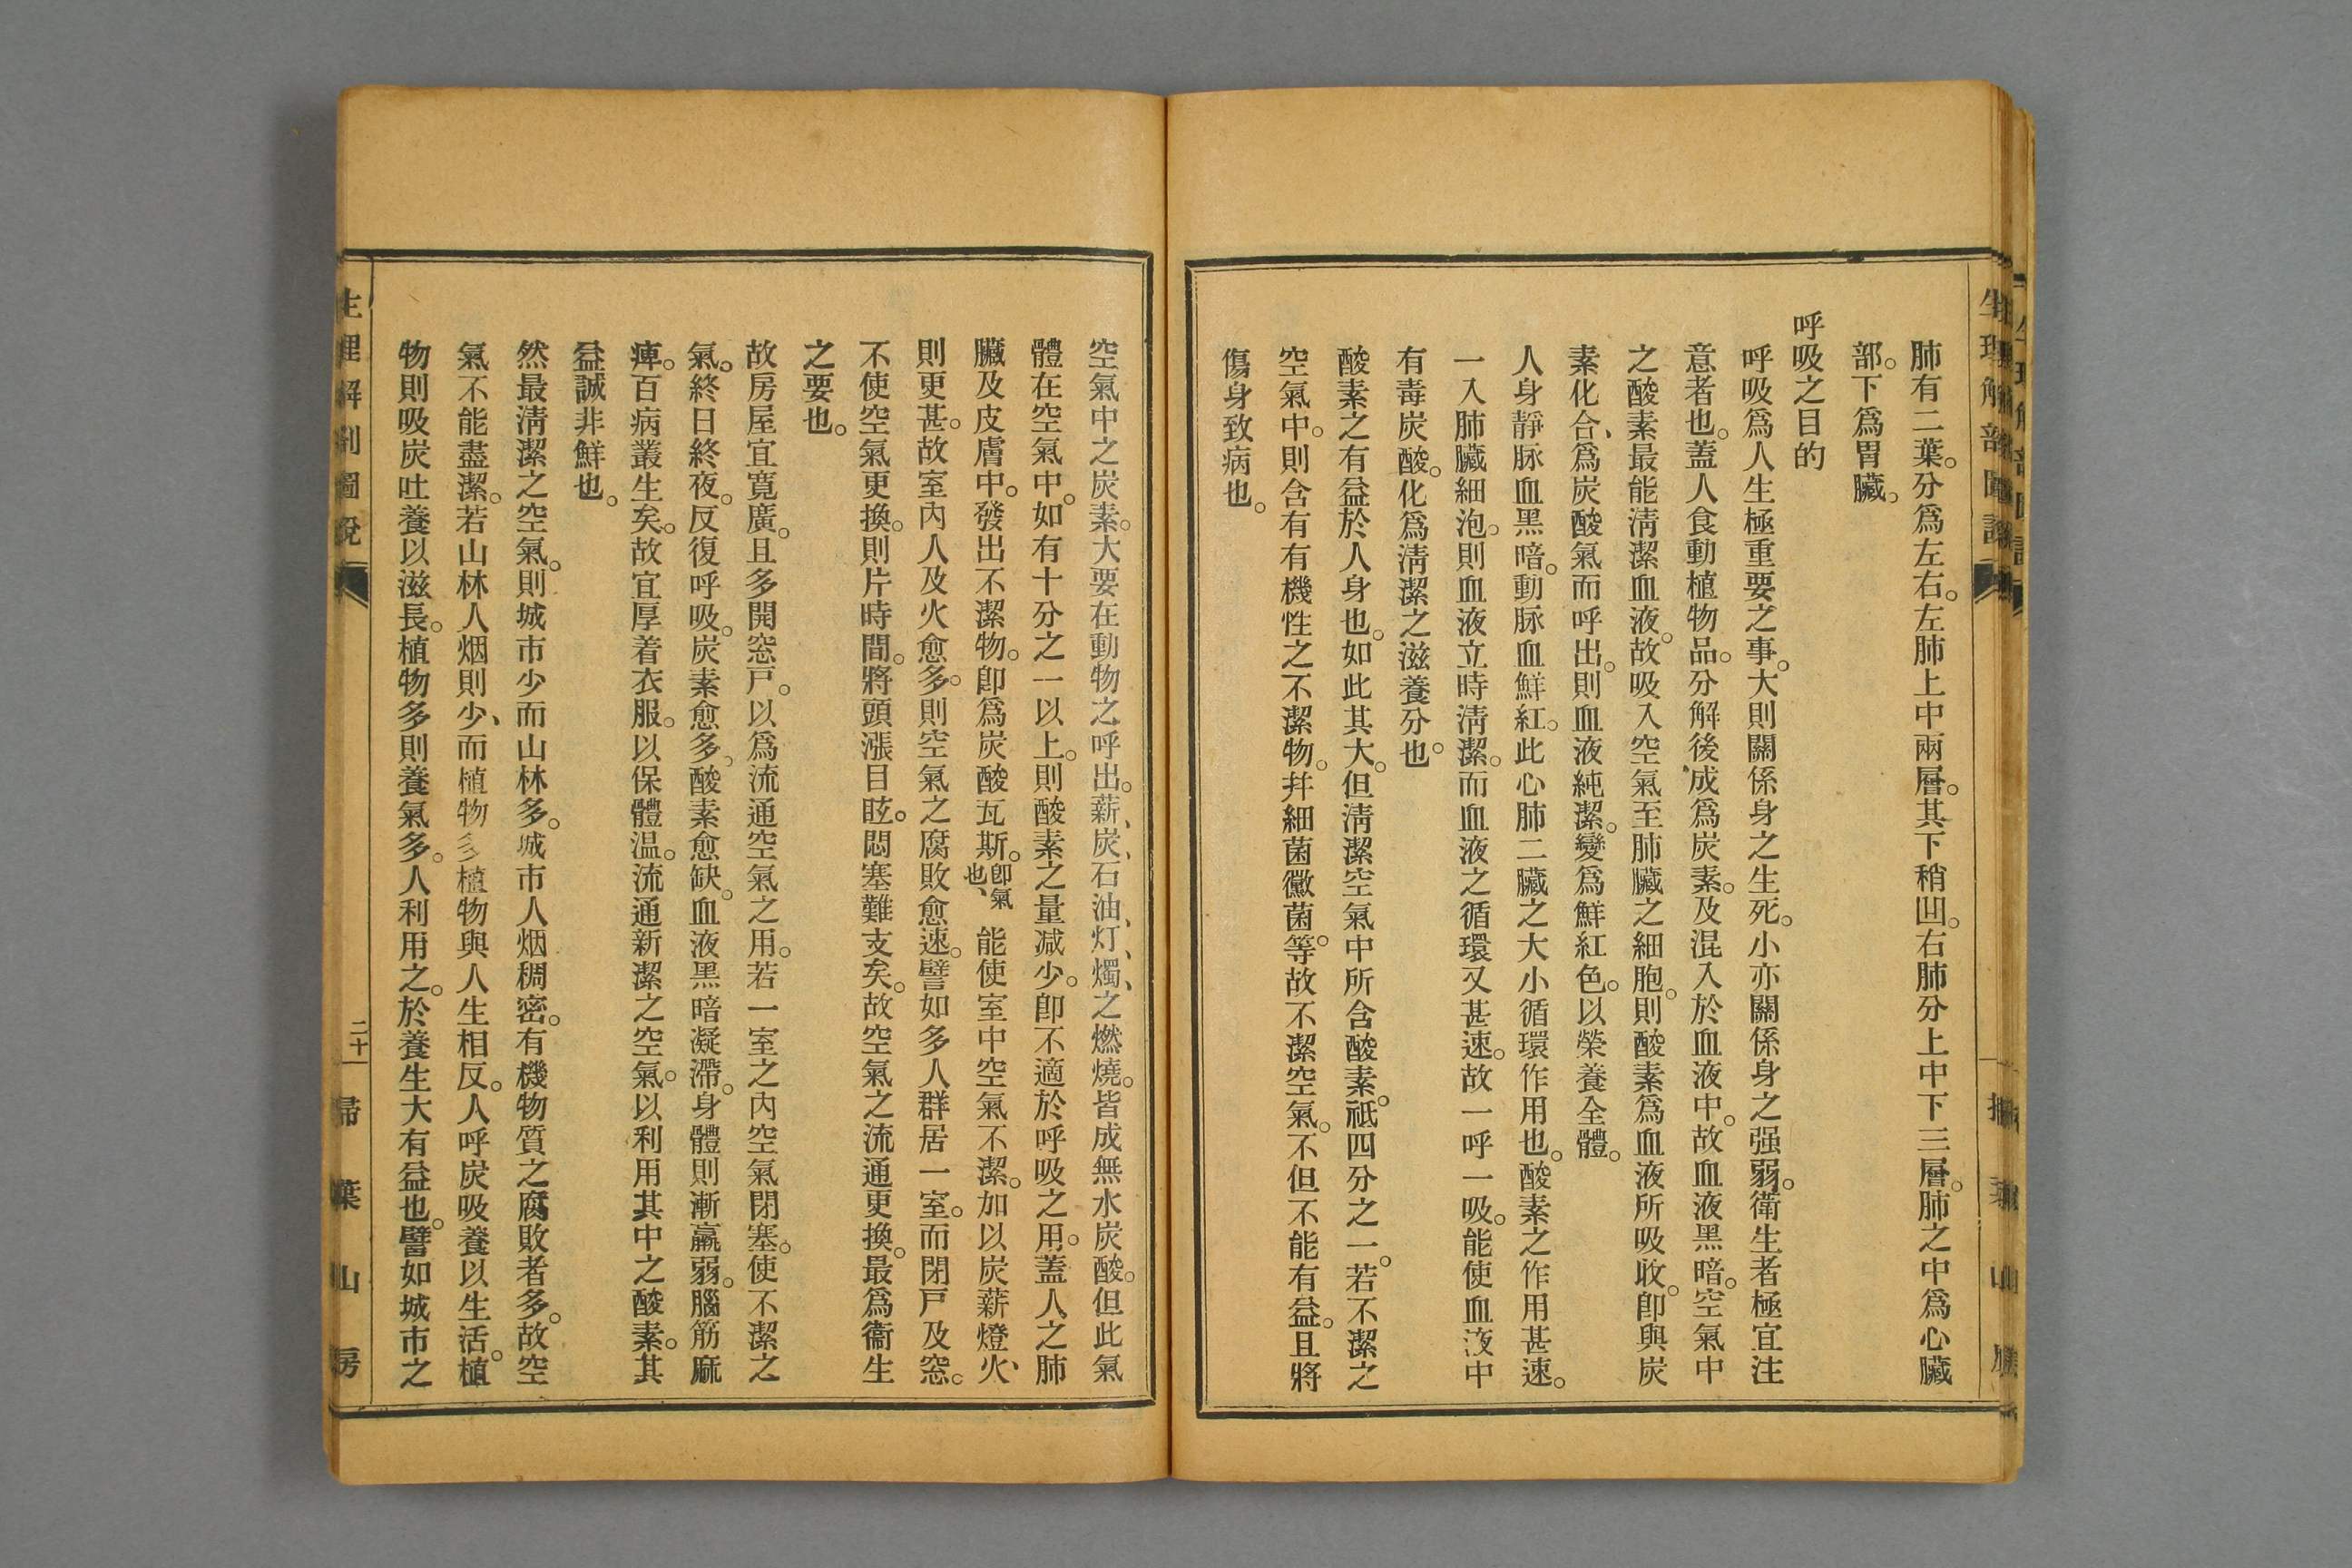 肺有二葉。分爲左右。左肺上中兩層。其下稍凹。右肺分上中下三層。肺之中爲心臟
部。下爲胃臟。
呼吸之目的
呼吸爲人生極重要之事。大則關係身之生死。小亦關係身之强弱。衛生者極宜注
意者也。蓋人食動植物品。分解後成爲炭素。及混入於血液中。故血液黑暗。空氣中
之酸素最能清潔血液。故吸入空氣至肺臟之細胞。則酸素爲血液所吸收。卽與炭
素化合、爲炭酸氣而呼出。則血液純潔。變爲鮮紅色。以榮養全體。
人身靜脉血黑暗。動脉血鮮紅。此心肺二臟之大小循環作用也。酸素之作用甚速。
一入肺臟細泡。則血液立時清潔。而血液之循環又甚速。故一呼一吸。能使血液中
有毒炭酸。化爲清潔之滋養分也。
酸素之有益於人身也。如此其大。但清潔空氣中所含酸素。祗四分之一。若不潔之
空氣中。則含有有機性之不潔物。幷細菌黴菌等。故不潔空氣。不但不能有益。且將
傷身致病也。
空氣中之炭素。大要在動物之呼出。薪、炭、石油、灯、燭、之燃燒。皆成無水炭酸。但此氣
體在空氣中。如有十分之一以上。則酸素之量减少。卽不適於呼吸之用。蓋人之肺
臟及皮膚中。發出不潔物。卽爲炭酸瓦斯。卽氣也、能使室中空氣不潔。加以炭薪燈火、
則更甚。故室內人及火愈多。則空氣之腐敗愈速。譬如多人群居一室。而閉戶及窓。
不使空氣更換。則片時間。將頭漲目眩。悶塞難支矣。故空氣之流通更換。最爲衞生
之要也。
故房屋宜寬廣。且多開窓戶。以爲流通空氣之用。若一室之內空氣閉塞。使不潔之
氣。終日終夜。反復呼吸。炭素愈多。酸素愈缺。血液黑暗凝滯。身體則漸羸弱。腦筋麻
痺。百病叢生矣。故宜厚着衣服。以保體温。流通新潔之空氣。以利用其中之酸素。其
益誠非鮮也。
然最淸潔之空氣。則城市少而山林多。城市人烟稠密。有機物質之腐敗者多。故空
氣不能盡潔。若山林人烟則少、而植物多植物與人生相反。人呼炭吸養以生活。植
物則吸炭吐養以滋長。植物多則養氣多。人利用之。於養生大有益也。譬如城市之
生理解剖圖說
二十
掃葉山房